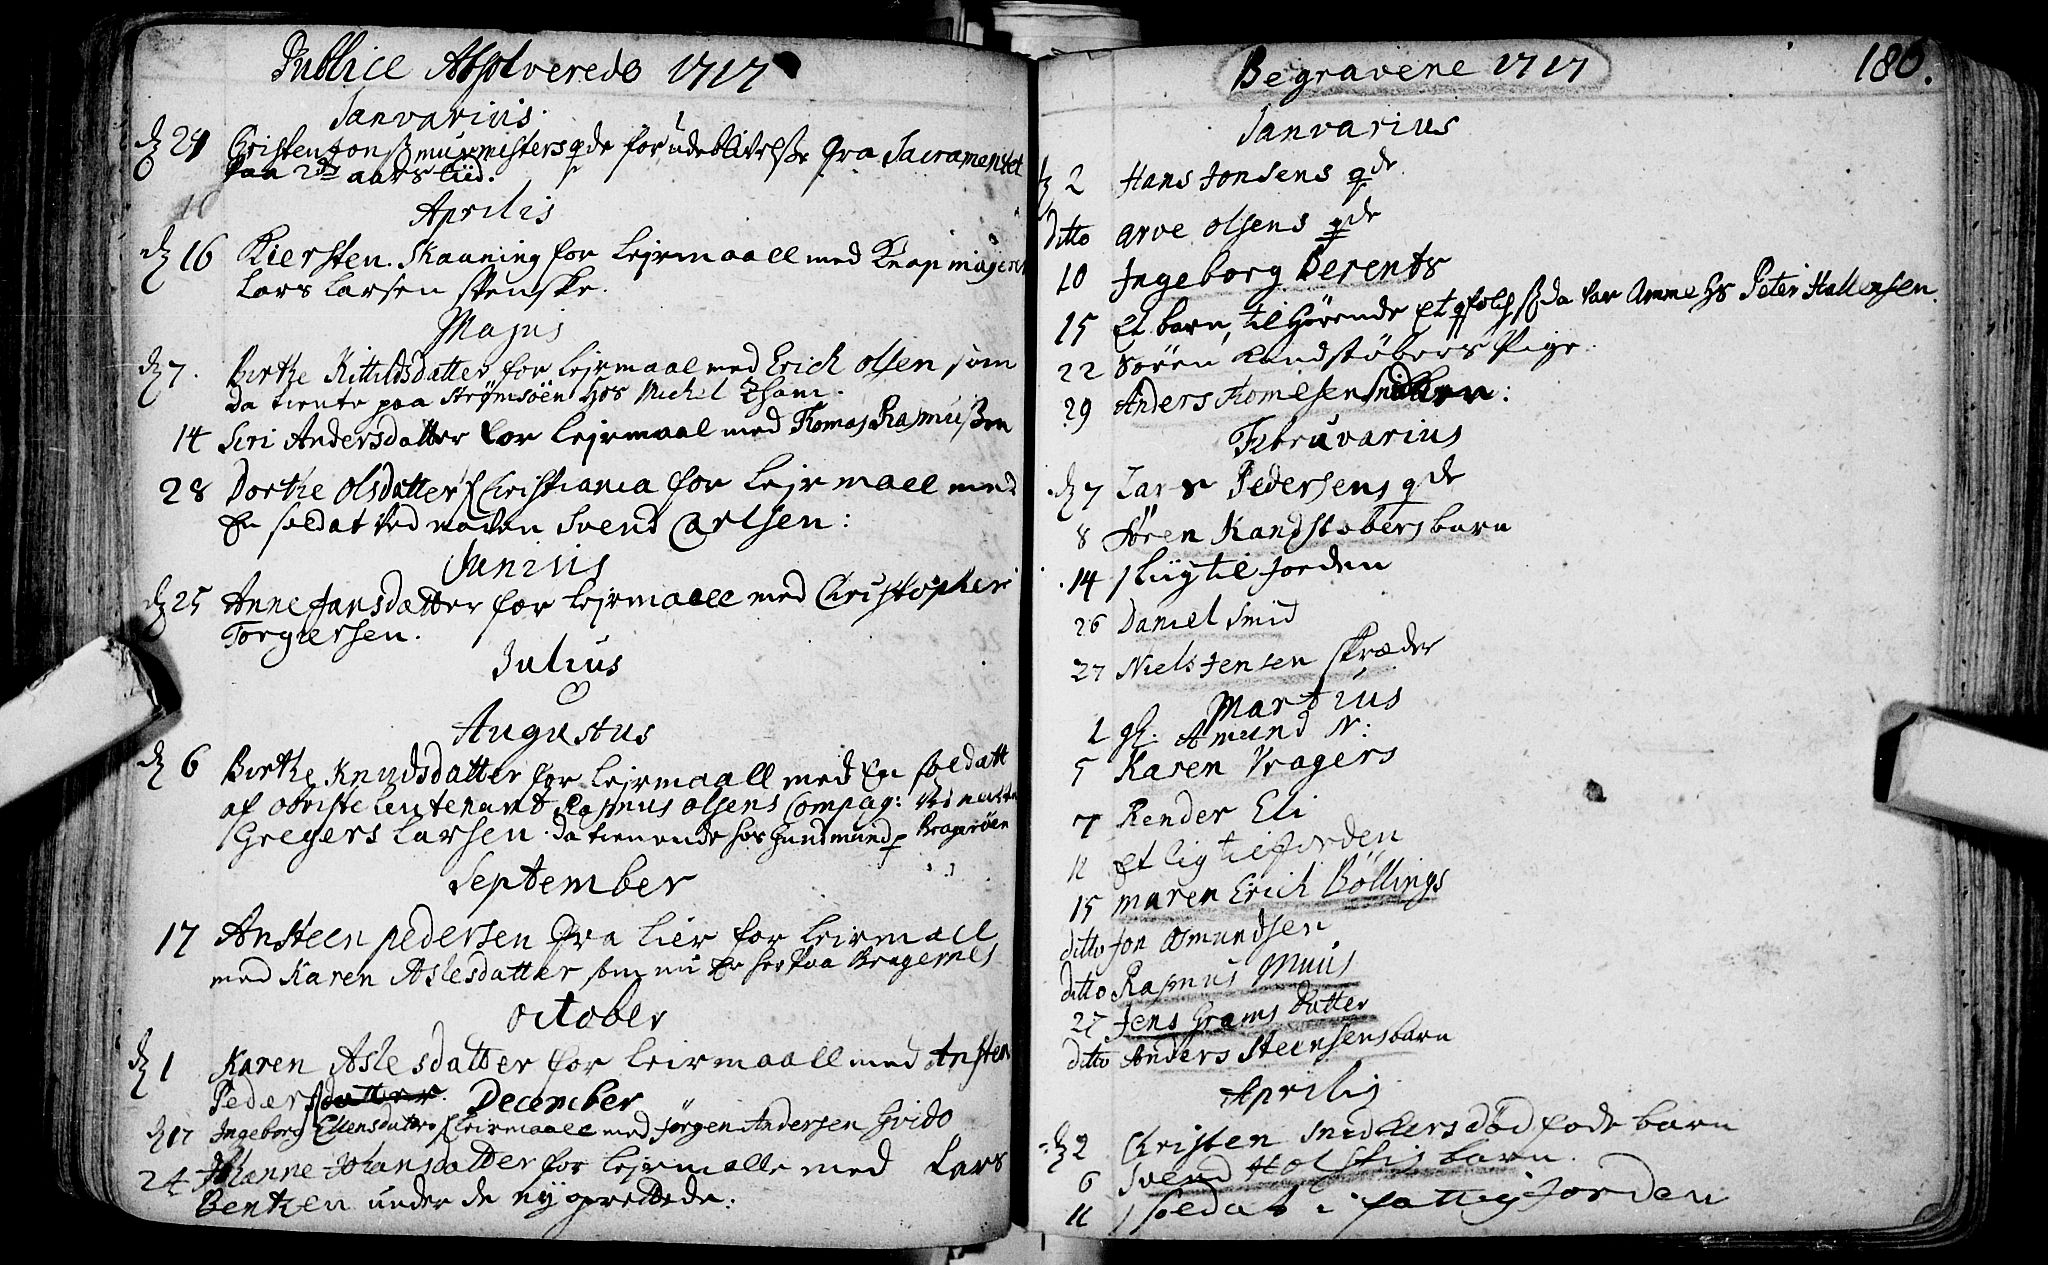 Publice Absolverede 1717
Janvarius.
d 24 Christen Jonß murmesters qde for udeblivelße fra Sacramentet
paa 2de aars tiid.
Aprilis
d 16 Kiersten Skanning for Lejrmaall med
Lars Larsen Svenske.
Majus
d 7. Birthe Kittilsdatter for Lejrmaal med Erich Olsen som
da tiente paa Strømsöen hos Michel Tham.
14 Siri Andersdatter for Lejrmaal med Thomas Rasmußen
28 Dorthe Olsdatter Christiania for Lejrmaal med
En soldat ved navn Svend Carlsen:
Junius
d 25 Anne Jansdatter for Lejrmaall med Christopher
Torgiersen.
Julius
Augustus
d 6 Birthe Knudsdatter for Lejrmaall med En soldatt
af Obriste Leutenant Rasmus Olsens Compag: ved
Gregers Larsen da tienende hos Gundmund Bragerøen
September
17 Ansteen pedersen fra Lier for Leirmaall
med Karen Aslesdatter som nu Er her paa Bragernes
October
d 1 Karen Aslesdatter for Leirmaall med Ansten
Peders datter.
December
d 17 Ingeborg Ellensdatter Leirmaall med Jørgen Andersen
24 Johanne Johansdatter for Lejrmalle med Lars
Bentzen under de ny oprettede:
Begravene 1717
180.
Janvarius
d 2 Hans Jonsens qde
ditto Arve Olsens qde
10 Ingeborg Berents
15 Et barn, tilhörende Et qfolch da var Amme hs Peter Hallensen.
22 Sören Kandstöbers Pige.
29 Anders Tomesen
Februvarius
d 7 Lars Pedersens qde
8 Sören Kandstobers barn
14 1 Liig til Jorden
26 Daniel Smid
27 Niels Jensen skræder
Martius
1 gl. Amund N:
5 Karen Vragers
7 Render Eli
11 Et lig til jorden
15 maren Erich Böllings
ditto Jon Omundsen
ditto Rasmus Muus
27 Jens Grams Datter
ditto Anders Steensens barn
Aprilis
d 2 Christen Snidkers død fødde barn
6 Svend Holstes barn.
11 1 soldat i fattig Jorden